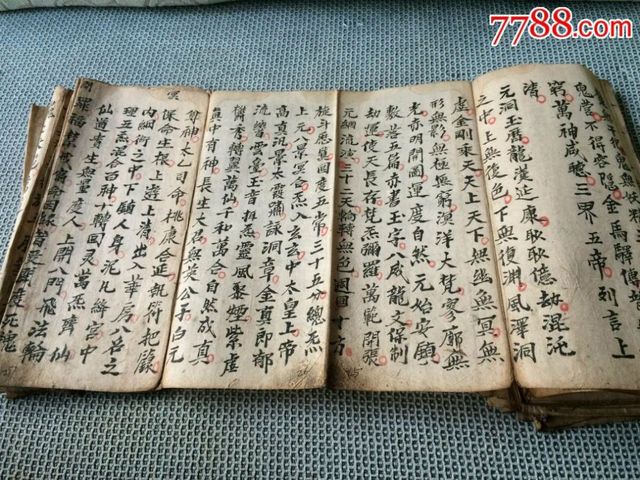 鬼嘗不得容隱金馬驛傳
窮萬神咸聽三界五帝列言上
清
元洞玉曆龍漢延康眇眇億劫混沌
之中上無復色下無復淵風澤洞
虛金剛乘天天上天下無幽無冥無
形無影無極無窮溟涬大梵寥廓無
光赤明開圖運度自然元始安鎮
敷落五篇赤書玉字八威龍文保制
劫運使天長存梵炁彌羅萬範開張
元綱流演三十二天輪轉無色周回十方
歷箕回度五常三十五分總炁
上元八景冥合炁入玄玄中太皇上帝
高真泛景太霞嘯詠洞章金真朗郁
流響雲營玉音攝炁靈風聚煙紫虛
鬱秀輔翼萬仙千和萬合自然成真
真中有神長生大君無英公子白元
尊神太乙司命桃康合延執符把籙
保命生根上遊上清出入華房八冥之
內細微之中下鎮人身泥丸絳宮中
理五炁混合百神十轉回靈萬炁齊仙
仙道貴生無量度人上開八門飛法輪
罪福禁戒宿命因緣普受開度死魂
7788.com